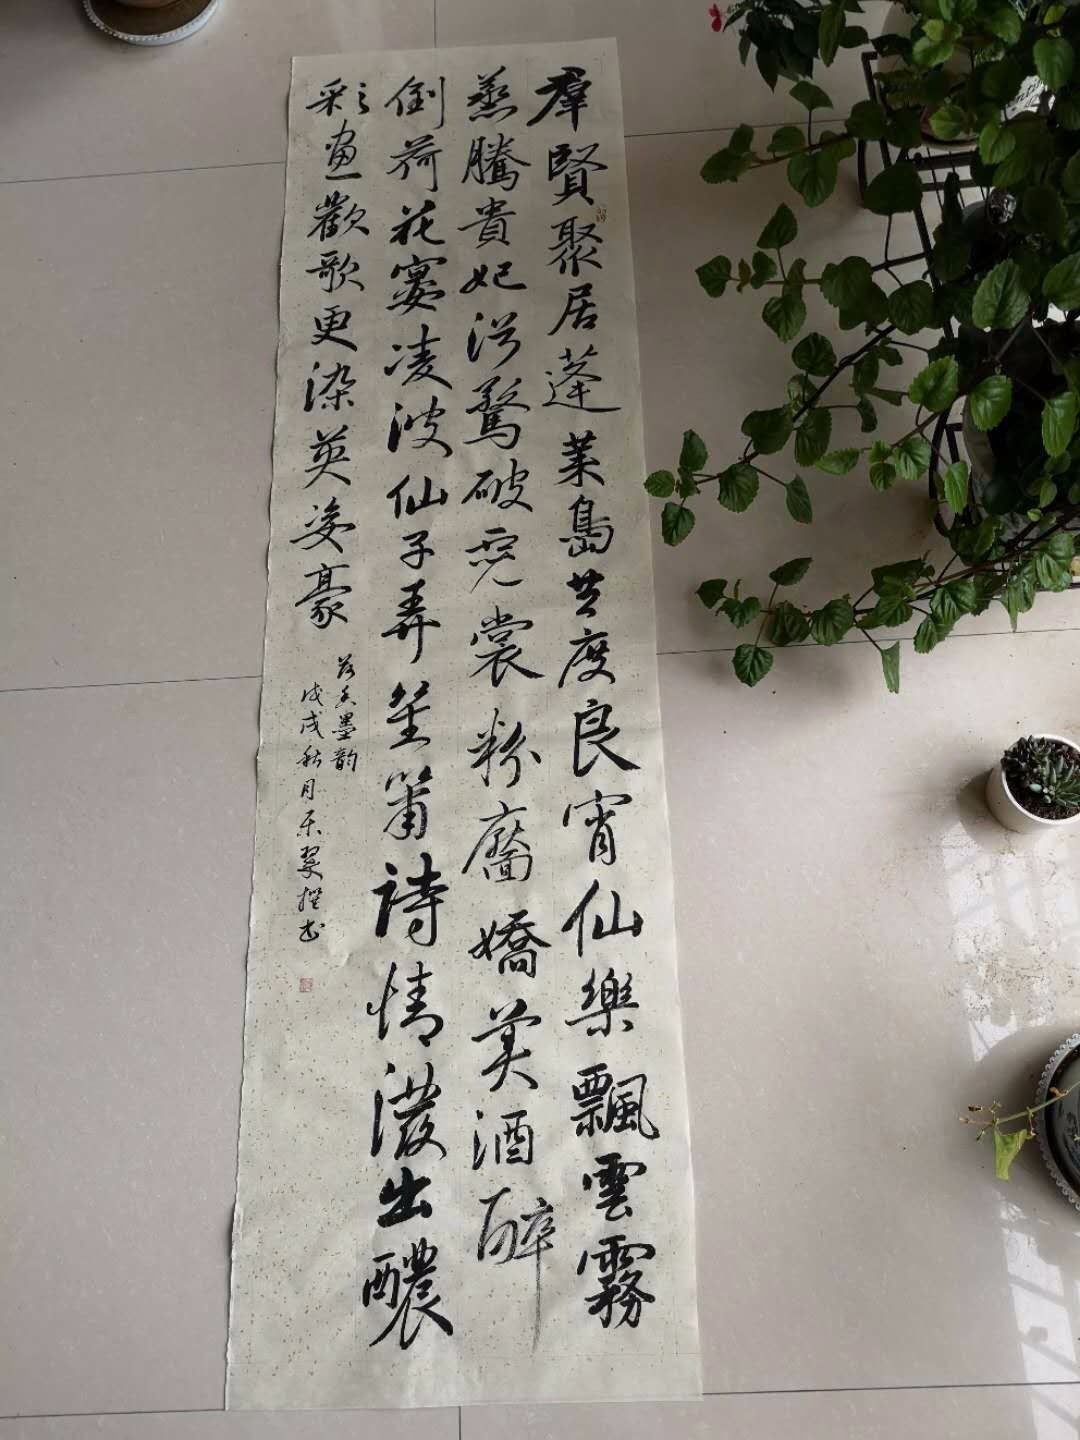 羣賢聚居蓬萊島共度良宵仙樂飄雲霧
蒸騰貴妃浴驚破霓裳粉靨嬌美酒醉
倒荷花宴凌波仙子弄笙簫詩情濃出醲
彩畫歡歌更染英姿豪
墨韵
戊戌秋月